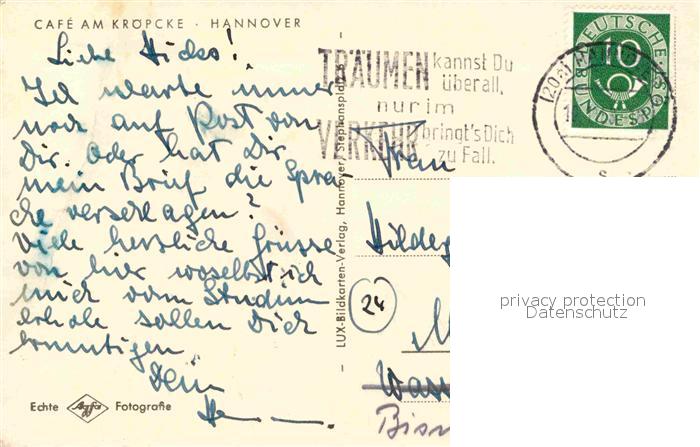 CAFÉ AM KRÖPCKE · HANNOVER
Liebe
Ich warte immer
noch auf Post von
Dir. Oder hat Dir
mein Brief die Spra
che verschlagen?
Viele herzliche Grüsse
von hier woselbst ich
mich vom Studium
erhole sollen Dich
ermutigen
Dein
Echte Agfa Fotografie
LUX-Bildkarten-Verlag, Hannover, Stephansplatz
TRÄUMEN kannst Du
überall,
nur im
VERKEHR bringt's Dich
zu Fall.
DEUTSCHE BUNDESPOST
10
(20a)
Frau
Hildeg
24
M
Wass
Bis
privacy protection
Datenschutz